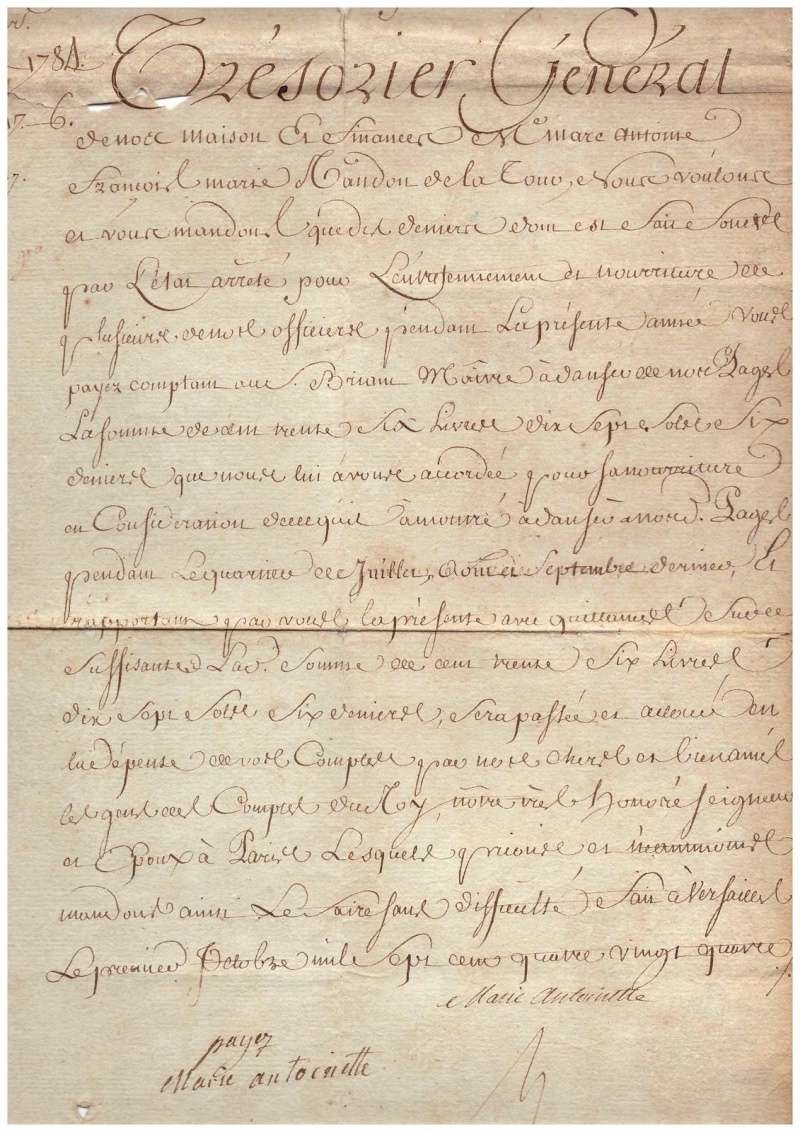 1784.
Trésorier Général
6.
de notre maison Et finances Me. marc antoine
françois marie Randon de la Tour, Nous voulons
et vous mandons que des deniers dont est fait fonds
par L'état arrêté pour L'entretennement et nourriture de
plusieurs de nos officiers pendant La présente année vous
payez comptant au S. Briant Maitre à danser de nos Pages
La somme de cent trente Six Livres dix Sept Sols Six
deniers que nous lui avons accordée pour sa nourriture
en Considération de ce qu'il a montré à danser à nosd. Pages
pendant Le quartier de Juillet, Aoust et Septembre dernier, Et
rapportant par vous la présente avec quittance Sur ce
Suffisante Lad. Somme de cent trente Six Livres
dix Sept Sols Six deniers, Sera passée et allouée En
la dépense de vos Comptes par nos chers et bienamés
les gens des Comptes du Roy, nôtre très Honoré Seigneur
et Epoux à Paris Lesquels prions et néanmoins
mandons ainsi Le faire sans difficulté fait à Versailles
Le premier Octobre mil Sept cent quatre vingt quatre
Marie Antoinette
payez
Marie antoinette